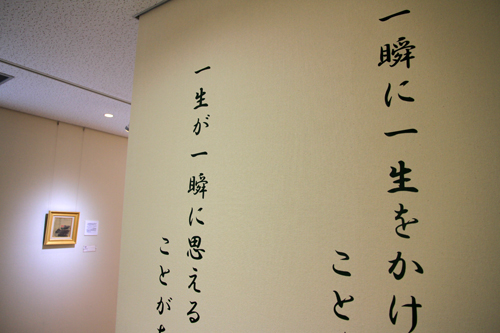 一瞬に一生をかけ
こと
一生が一瞬に思える
ことがあ